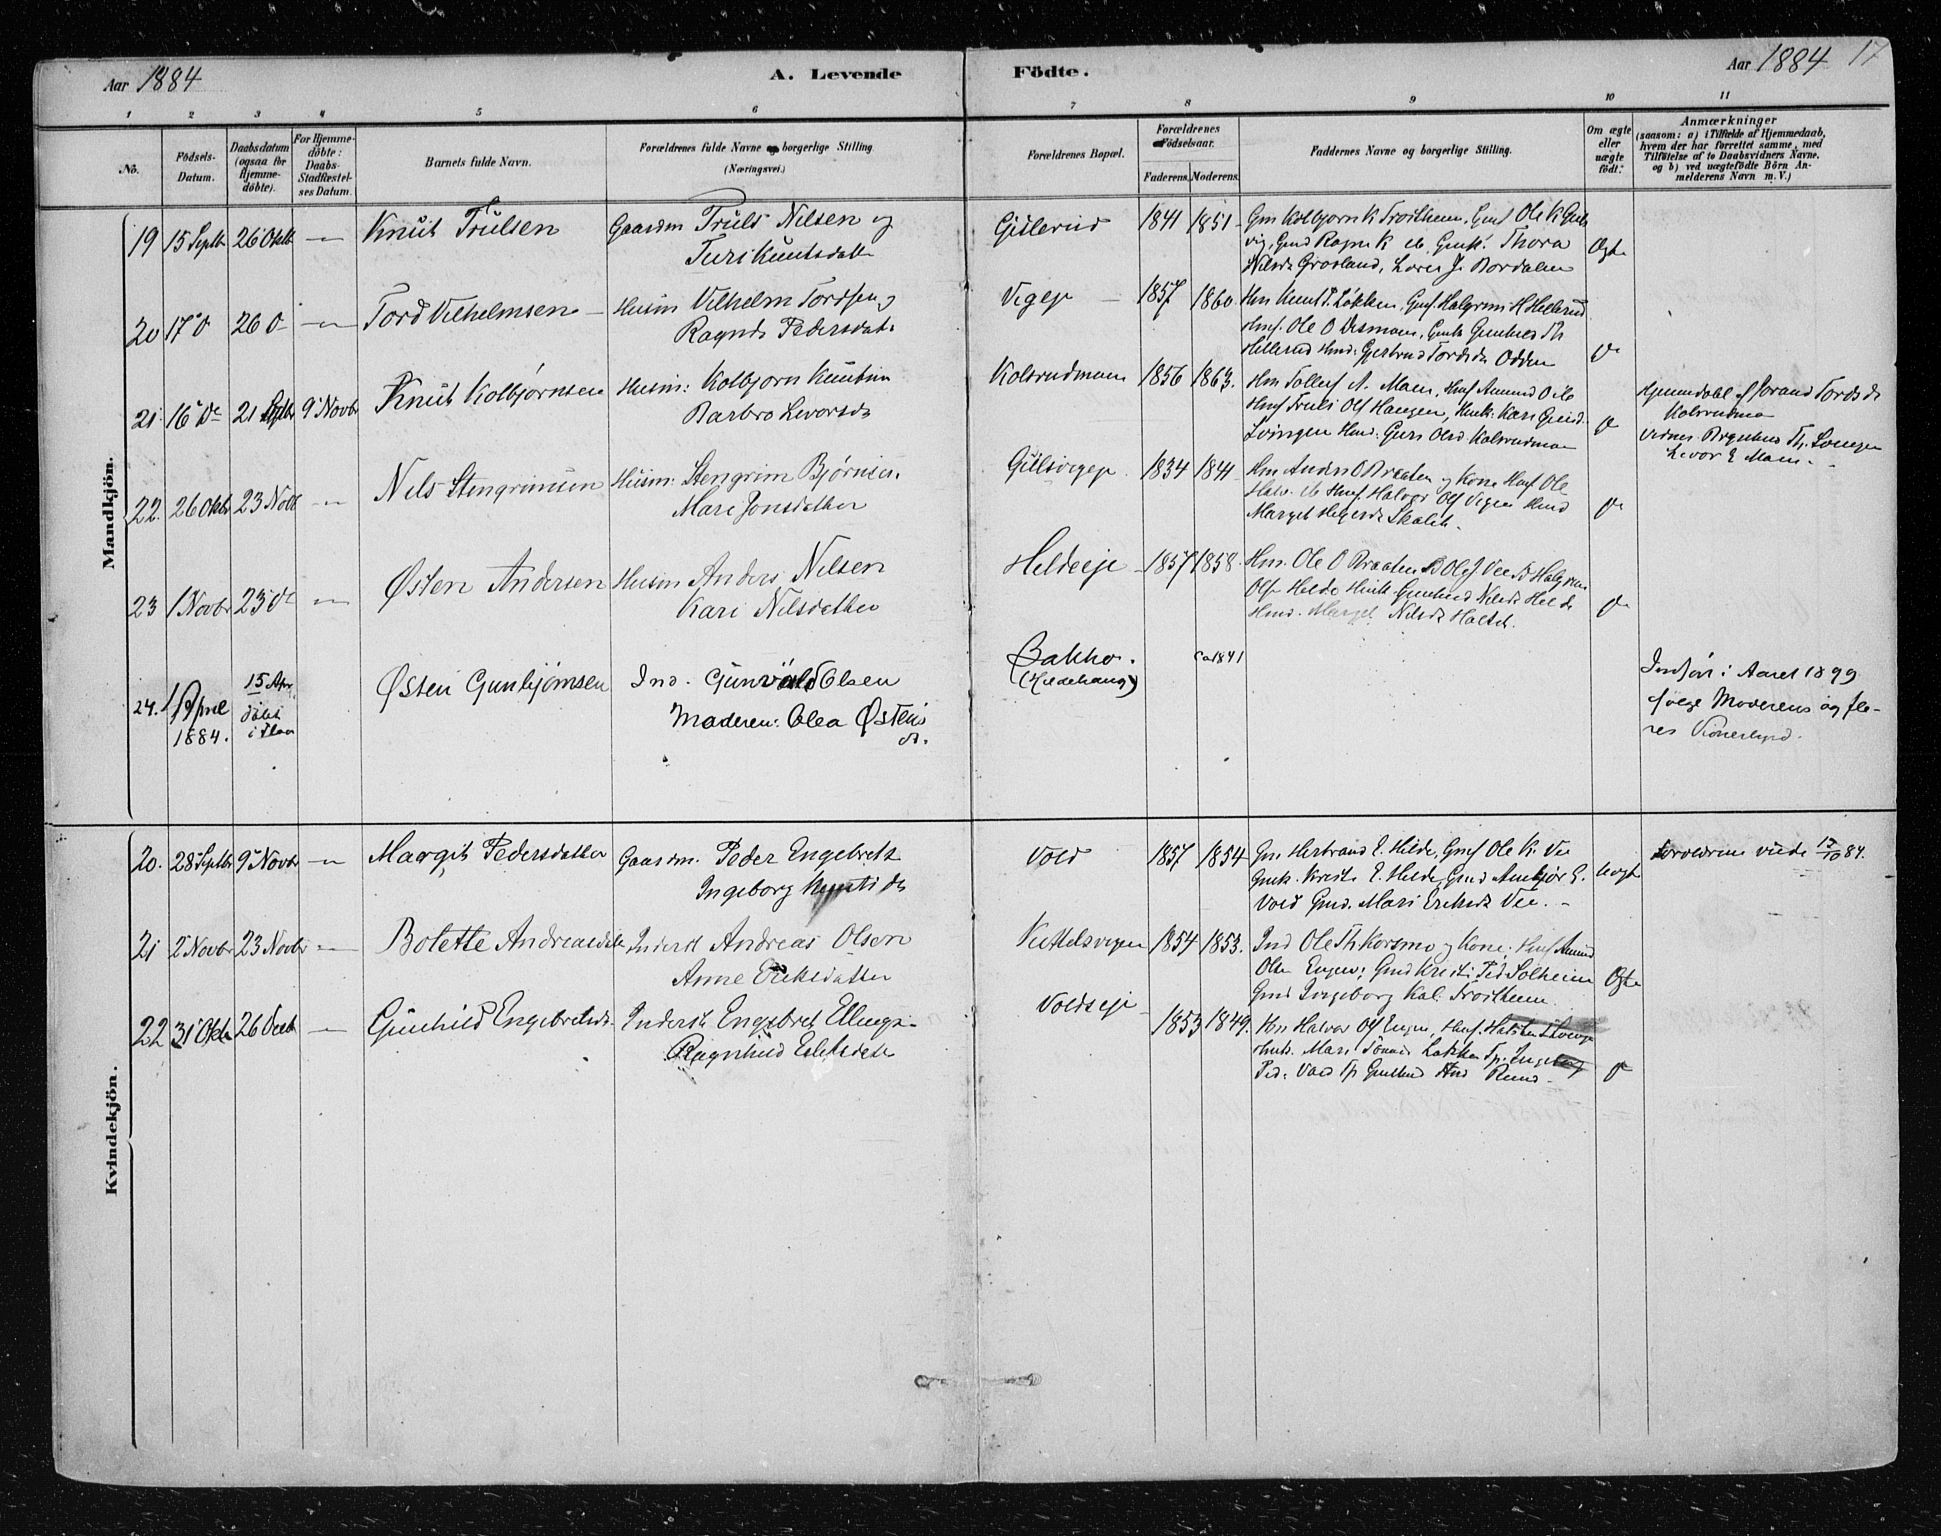 Aar 1884
A. Levende
Födte.
Aar 1884
17
1 2 3 4 5 6 7 8 9 10 11
No.
Födsels-
Datum.
Daabsdatum
(ogsaa for
Hjemme-
döbte).
For Hjemme-
döbte:
Daabs-
Stadfæstel-
ses Datum.
Barnets fulde Navn.
Forældrenes fulde Navne og borgerlige Stilling
(Næringsvei.)
Forældrenes Bopæl.
Forældrenes
Födselsaar.
Faderens. Moderens.
Faddernes Navne og borgerlige Stilling.
Om ægte
eller
uægte
födt.
Anmærkninger
(saasom: a) i Tilfælde af Hjemmedaab,
hvem der har forrettet samme, med
Tilföielse af to Daabsvidners Navne.
og b) ved uægtefödte Börn An-
melderens Navn m. V.)
Mandkjön.
19 15 Septb 26 Oktb — Knut Trulsen Gaardm Truls Nilsen og
Turi Knutsdatt
Gislerud 1841 1851 Gm Kolbjørn K Troilheim, Gmf Ole K Gul
vig, Gmd Ragne K do Gmk. Thora
Nilsd. Grosland,
Ægte
20 17 d 26 d — Tord Vilhelmsen Husm Vilhelm Tordsen og
Ragnh Pedersdat.
Vigeje 1857 1860 Hm Knut T. Løkken, Gmf. Halgrim H Hellerud
Hmf. Ole O Vesmoen, Gmk Gunhild Th
Hellerud Hmd: Gjertrud Tordsd. Odden
do
21 16 de 21 Septb 9 Novbr Knut Kolbjørnsen Husm: Kolbjørn Knutsen
Barbro Levorsd
Kolsrudmoen 1856 1863. Hm Tollef A. Moen, Hmf Amund O do
Hmf Truls Ols Haugen, Hmk: Kari Gund.
Svingen Hmd: Guri Olsd. Kolsrudmoen
do
Hjemmedøbt af Jorand Tordsd
Kolsrudmoen
Vidner
Levor E Moen.
22. 26 Oktb 23 Novb — Nils Stengrimsen Husm: Stengrim Bjørnsen.
Mari Jonsdatter
Gulsvigeje 1834 1841 Hm Anders O Braaten og Kone Hmf Ole
Halv. do Hmf. Halvor Ols Vigen Hmd
Margit Helgesd.
do
23 1 Novbr 23 de — Østen Andersen Husm Anders Nilsen
Kari Nilsdatter
Hildeeje 1857 1858. Hm. Ole O Braaten
Olsen Hilde Hmk. Gunhild Nilsd Hilde
Hmd. Margit Nilsd.
do
24. 1 April
1884.
15 Apr
døbt
i Flaa
Østen Gunbjørnsen Ind. Gunvald Olsen
Moderen: Olea Østens
d.
Bakko.
(Hildehaug)
ca 1841
Indført i Aaret 1899
følge Moderens og fle-
res Vidnesbyrd.
Kvindekjön.
20. 28 Septbr 9 Novbr — Margit Pedersdatter Gaardm. Peder Engebrets
Ingeborg Knutsd
Vold 1857 1854 Gm Herbrand E. Hilde, Gmf Ole K. Vee
Gmk. Kristi E. Hilde, Gmd Annbjør E.
Vold Gmd. Mari Eriksd. Vee.
Uægt
Forældrene viede 13/10 84.
21 2 Novbr 23 Novbr — Bolette Andreasdatt Inderst Andreas Olsen
Anne Eriksdatter
1854 1853. Ind Ole Th Korsmo og Kone; Hmf Amund
Olsen Engen; Gmd Kristi Ped Solheim
Gmd Ingeborg Kol. Troilheim
Ægte
22 31 Oktb 26 Decb — Gunhild Engebretsd. Inderst Engebret Ellings.
Ragnhild Eriksdatt
Voldseje 1853 1849. Hm Halvor Ols Engen, Hmf.
Hmk. Mari Løkken Tp. Ingeborg
Ped. Vold Tp Gunhild
do